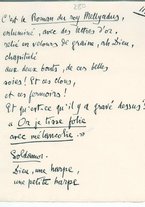 280
C'est le Roman du roy Meliadus,
enluminé, avec des lettres d'or,
relié en velours de graine, de Dieu,
chapitulé
aux deux bouts, de ces belles
soies! Et ces clous,
et ces fermoirs!
Et qu'est-ce qu'il y a gravé dessus?
« Or je tisse folie
avec mélancolie.»
Soldamor.
Dieu, une harpe,
une petite harpe